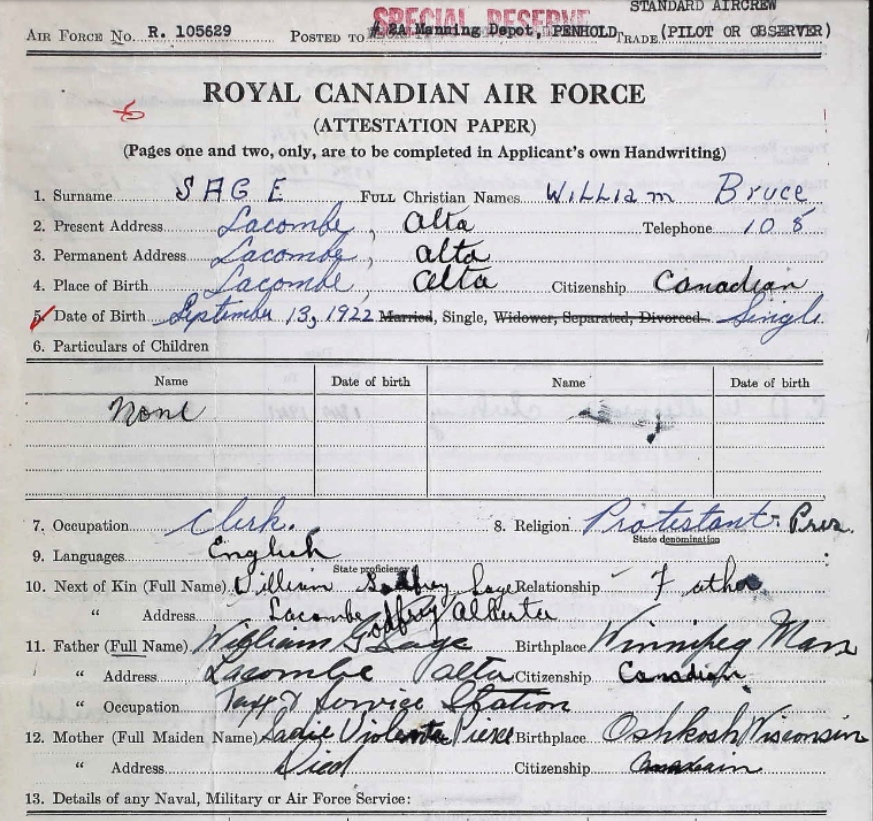 SPECIAL RESERVE
STANDARD AIRCREW
AIR FORCE No. R. 105629 POSTED TO #2A Manning Depot, PENHOLD TRADE (PILOT OR OBSERVER)
ROYAL CANADIAN AIR FORCE
(ATTESTATION PAPER)
(Pages one and two, only, are to be completed in Applicant's own Handwriting)
1. Surname SAGE FULL Christian Names William Bruce
2. Present Address Lacombe, Alta Telephone 108
3. Permanent Address Lacombe, alta
4. Place of Birth Lacombe, alta Citizenship Canadian
5. Date of Birth September 13, 1922 Married, Single, Widower, Separated, Divorced Single
6. Particulars of Children
Name Date of birth Name Date of birth
None
7. Occupation Clerk. 8. Religion Protestant. Pres.
State denomination
9. Languages English
State proficiency
10. Next of Kin (Full Name) William Godfrey Sage Relationship Father
" Address Lacombe Alberta
11. Father (Full Name) William Godfrey Sage Birthplace Winnipeg Man
" Address Lacombe alta Citizenship Canadian
" Occupation Taxi & Service Station
12. Mother (Full Maiden Name) Sadie Violenta Pierce Birthplace Oshkosh Wisconsin
" Address Died Citizenship Canadian
13. Details of any Naval, Military or Air Force Service: